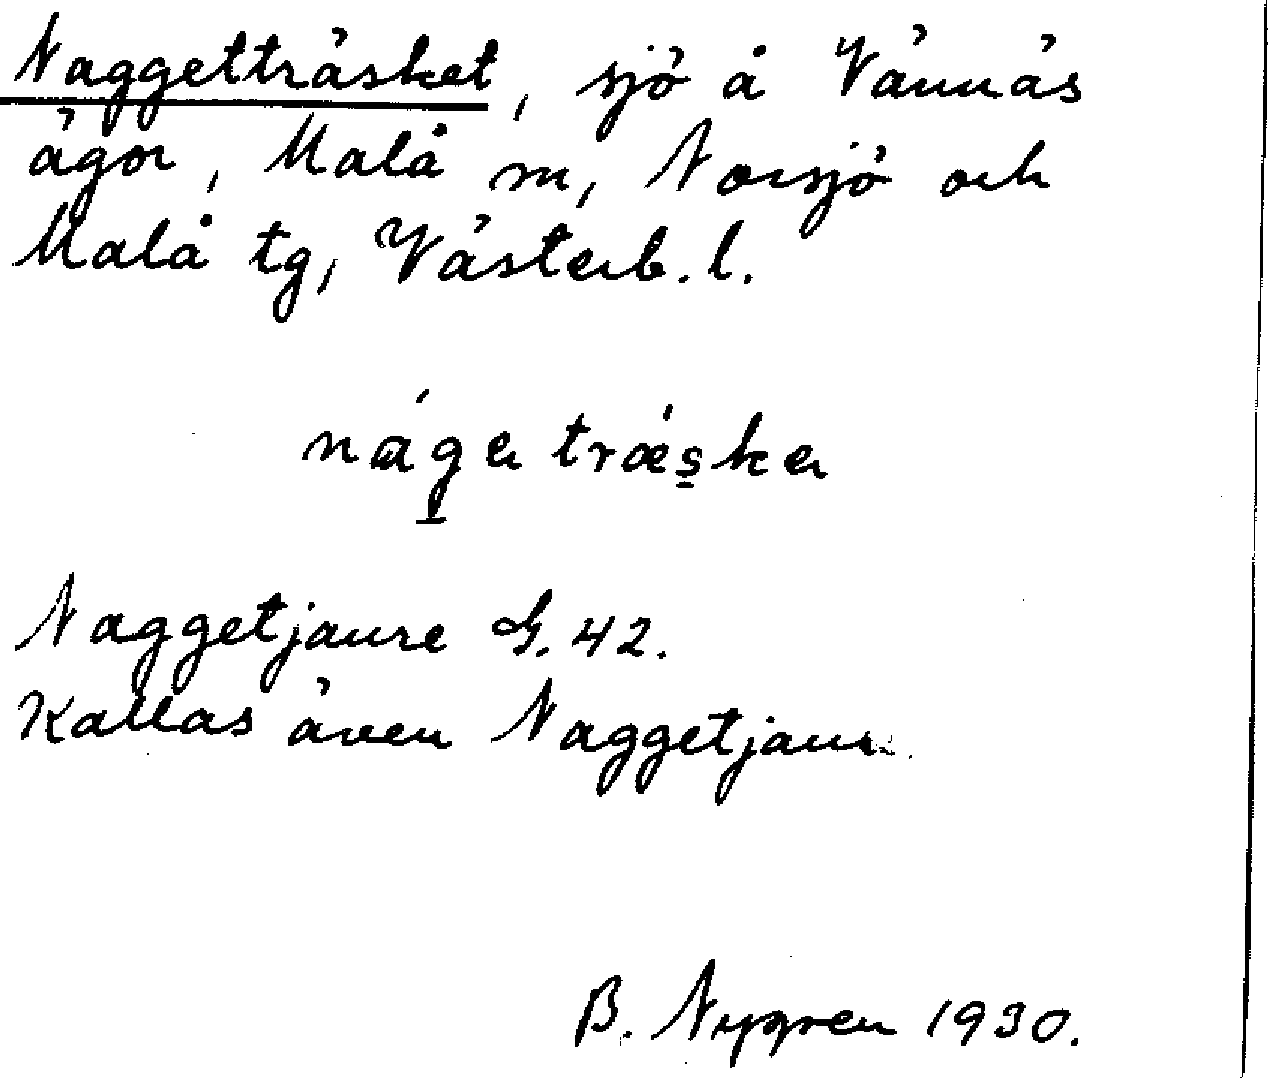 Naggetträsket, sjö å Vännäs
ägor, Malå sn, Norsjö och
Malå tg, Västerb. l.
nága trǽska
Naggetjaure G. 42.
Kallas även Naggetjaure.
B. Nygren 1930.